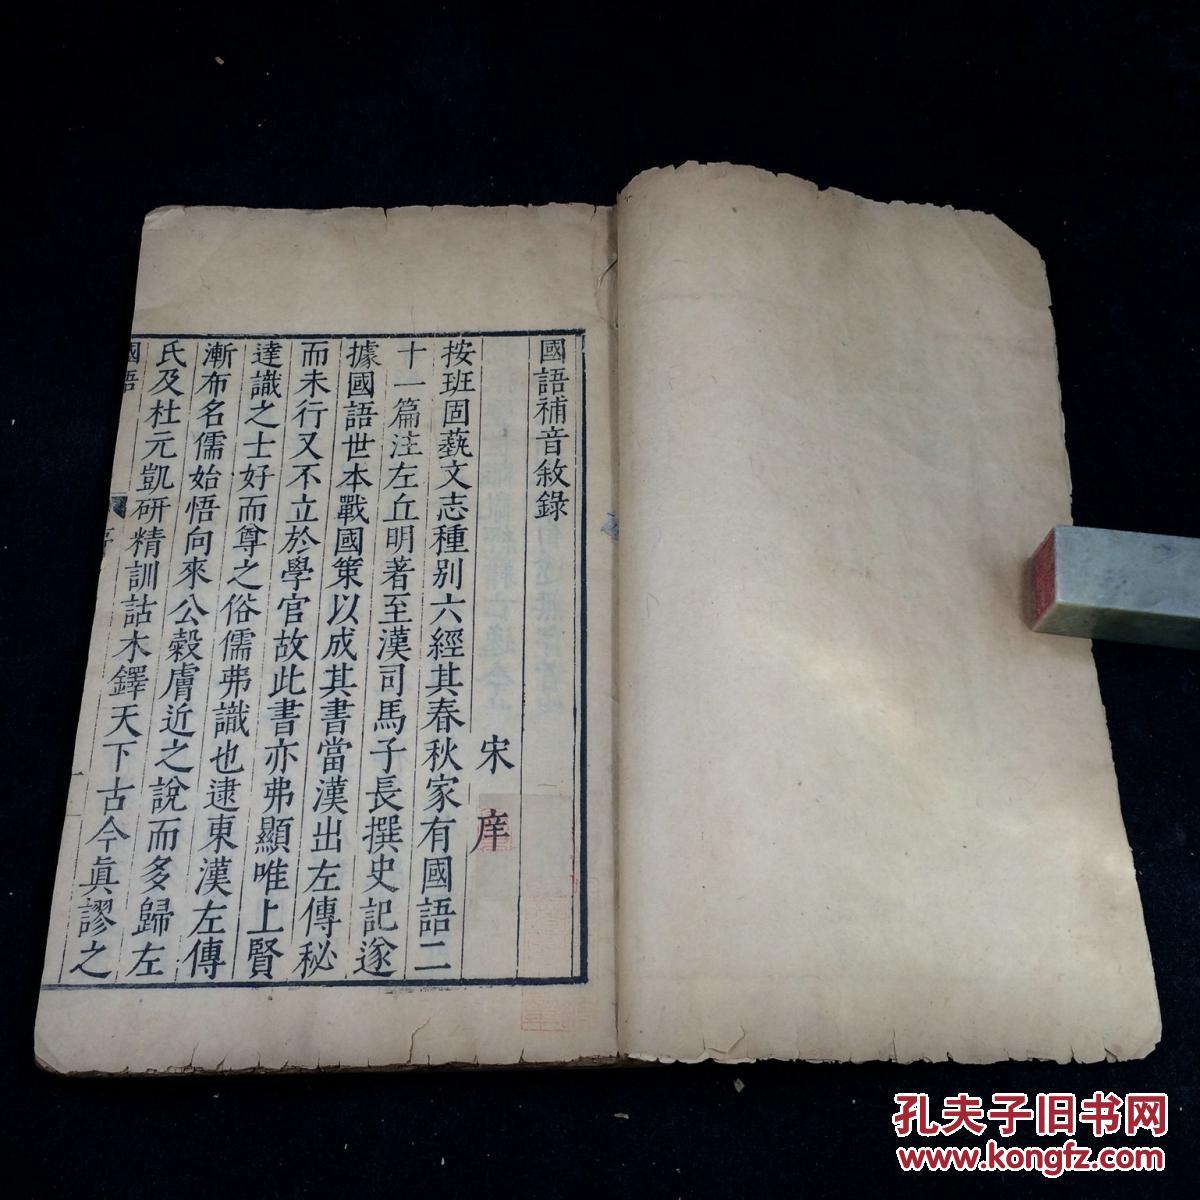 國語補音敘錄
宋 庠
按班固藝文志種別六經其春秋家有國語二
十一篇注左丘明著至漢司馬子長撰史記遂
據國語世本戰國策以成其書當漢出左傳秘
而未行又不立於學官故此書亦弗顯唯上賢
達識之士好而尊之俗儒弗識也逮東漢左傳
漸布名儒始悟向來公穀膚近之說而多歸左
氏及杜元凱研精訓詁木鐸天下古今眞謬之
國語
孔夫子旧书网
www.kongfz.com